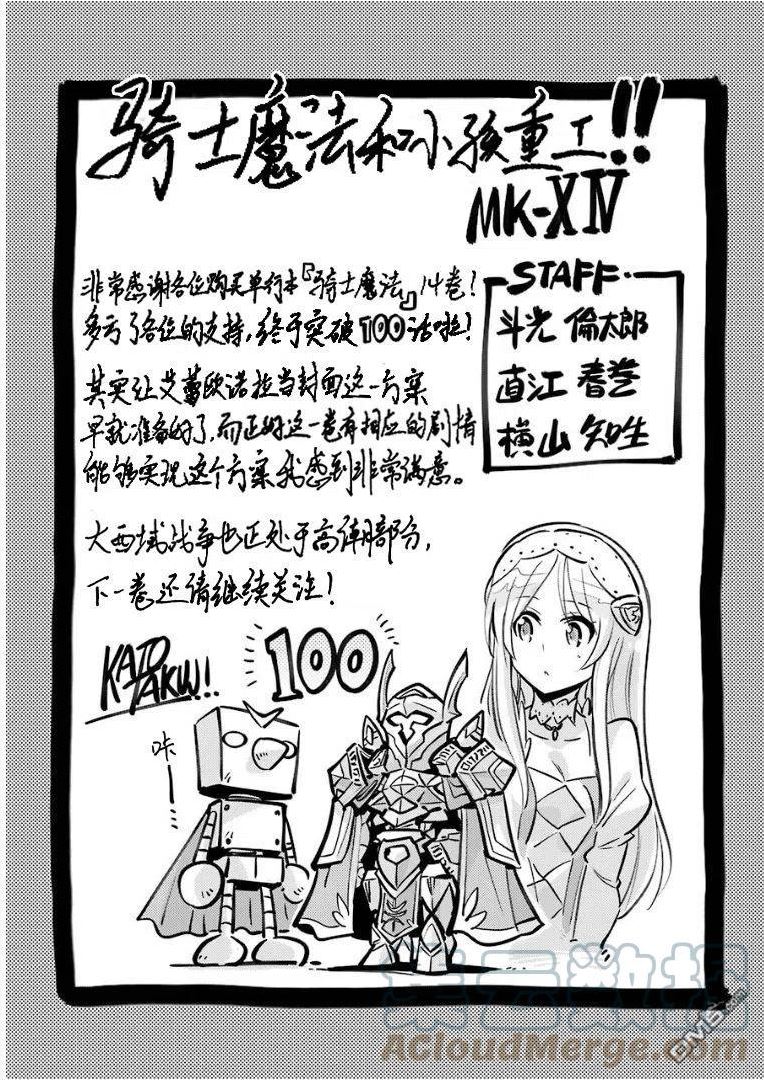 骑士魔法和小孩重工!!
MK-XIV
非常感谢各位购买单行本『骑士魔法』14卷!
多亏了各位的支持,终于突破100话啦!
其实让艾蕾欧诺拉当封面这一方案
早就准备好了,而正好这一卷有相应的剧情
能够实现这个方案我感到非常满意。
大西域战争也正处于高潮部分,
下一卷还请继续关注!
STAFF
斗光 倫太郎
直江 春巻
横山 知生
KATO
TAKU!!
100
咔
集云数据
ACloudMerge.com